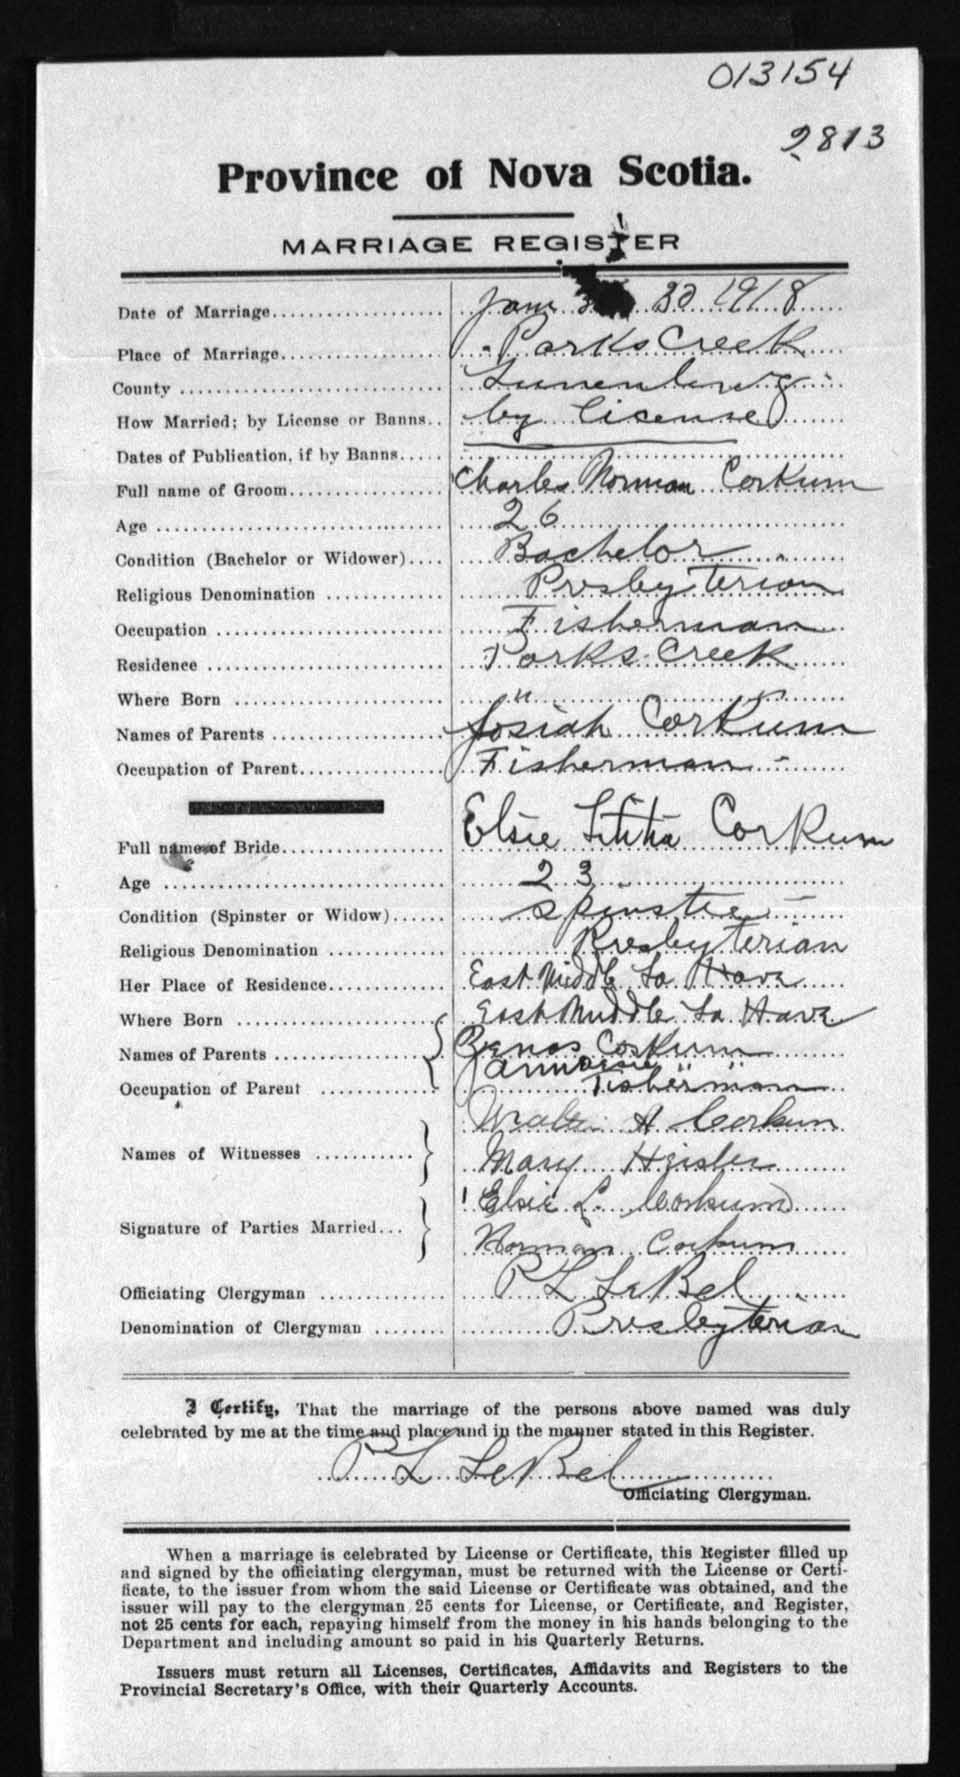 013154
2813
Province of Nova Scotia.
MARRIAGE REGISTER
Date of Marriage Jan 30 1918
Place of Marriage Parks Creek
County Lunenburg
How Married; by License or Banns by license
Dates of Publication, if by Banns
Full name of Groom Charles Norman Corkum
Age 26
Condition (Bachelor or Widower) Bachelor
Religious Denomination Presbyterian
Occupation Fisherman
Residence Parks Creek
Where Born "
Names of Parents Josiah Corkum
Occupation of Parent Fisherman
Full name of Bride Elsie Lititia Corkum
Age 23
Condition (Spinster or Widow) Spinster
Religious Denomination Presbyterian
Her Place of Residence East Middle La Have
Where Born East Middle La Have
Names of Parents Corkum
Occupation of Parent Fisherman
Names of Witnesses Walter A Corkum
Mary Heisler
Signature of Parties Married Elsie L. Corkum
Norman Corkum
Officiating Clergyman P L LeBel
Denomination of Clergyman Presbyterian
I Certify, That the marriage of the persons above named was duly
celebrated by me at the time and place and in the manner stated in this Register.
P L LeBel
Officiating Clergyman.
When a marriage is celebrated by License or Certificate, this Register filled up
and signed by the officiating clergyman, must be returned with the License or Certi-
ficate, to the issuer from whom the said License or Certificate was obtained, and the
issuer will pay to the clergyman 25 cents for License, or Certificate, and Register,
not 25 cents for each, repaying himself from the money in his hands belonging to the
Department and including amount so paid in his Quarterly Returns.
Issuers must return all Licenses, Certificates, Affidavits and Registers to the
Provincial Secretary's Office, with their Quarterly Accounts.